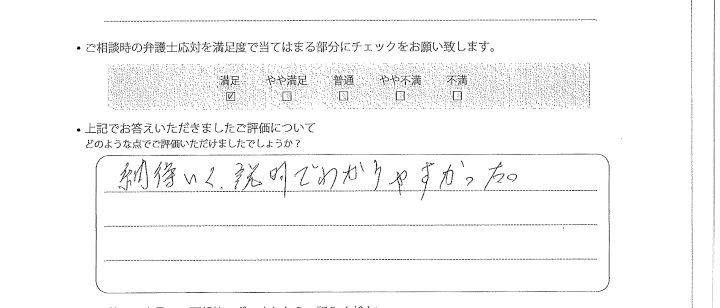 • ご相談時の弁護士応対を満足度で当てはまる部分にチェックをお願い致します。
満足 やや満足 普通 やや不満 不満
☑ ☐ ☐ ☐ ☐
• 上記でお答えいただきましたご評価について
どのような点でご評価いただけましたでしょうか？
納得いく、説明でわかりやすかった。